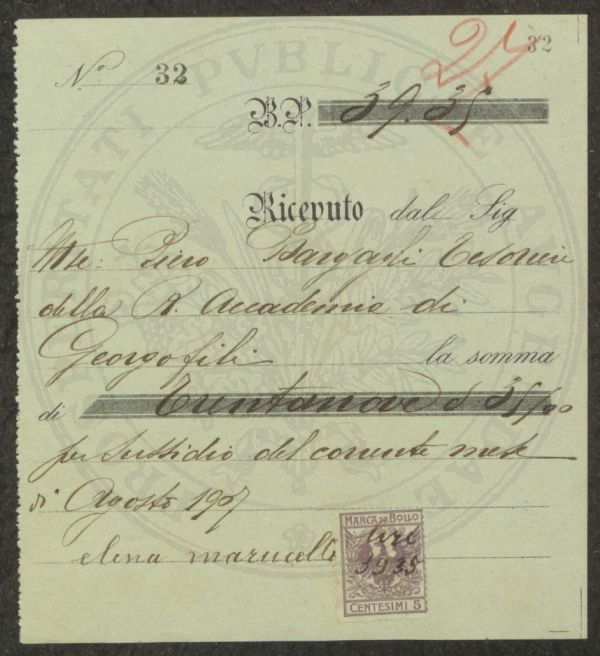 32
21
Nº 32
B.P. 39.35
Ricevuto dal Sig
Mse: Piero Bargagli Tesoriere
della R. Accademia di
Georgofili la somma
di Trentanove & 35/00
per sussidio del corrente mese
di Agosto 1907
elena marucelli
MARCA DA BOLLO
lire
39.35
CENTESIMI 5